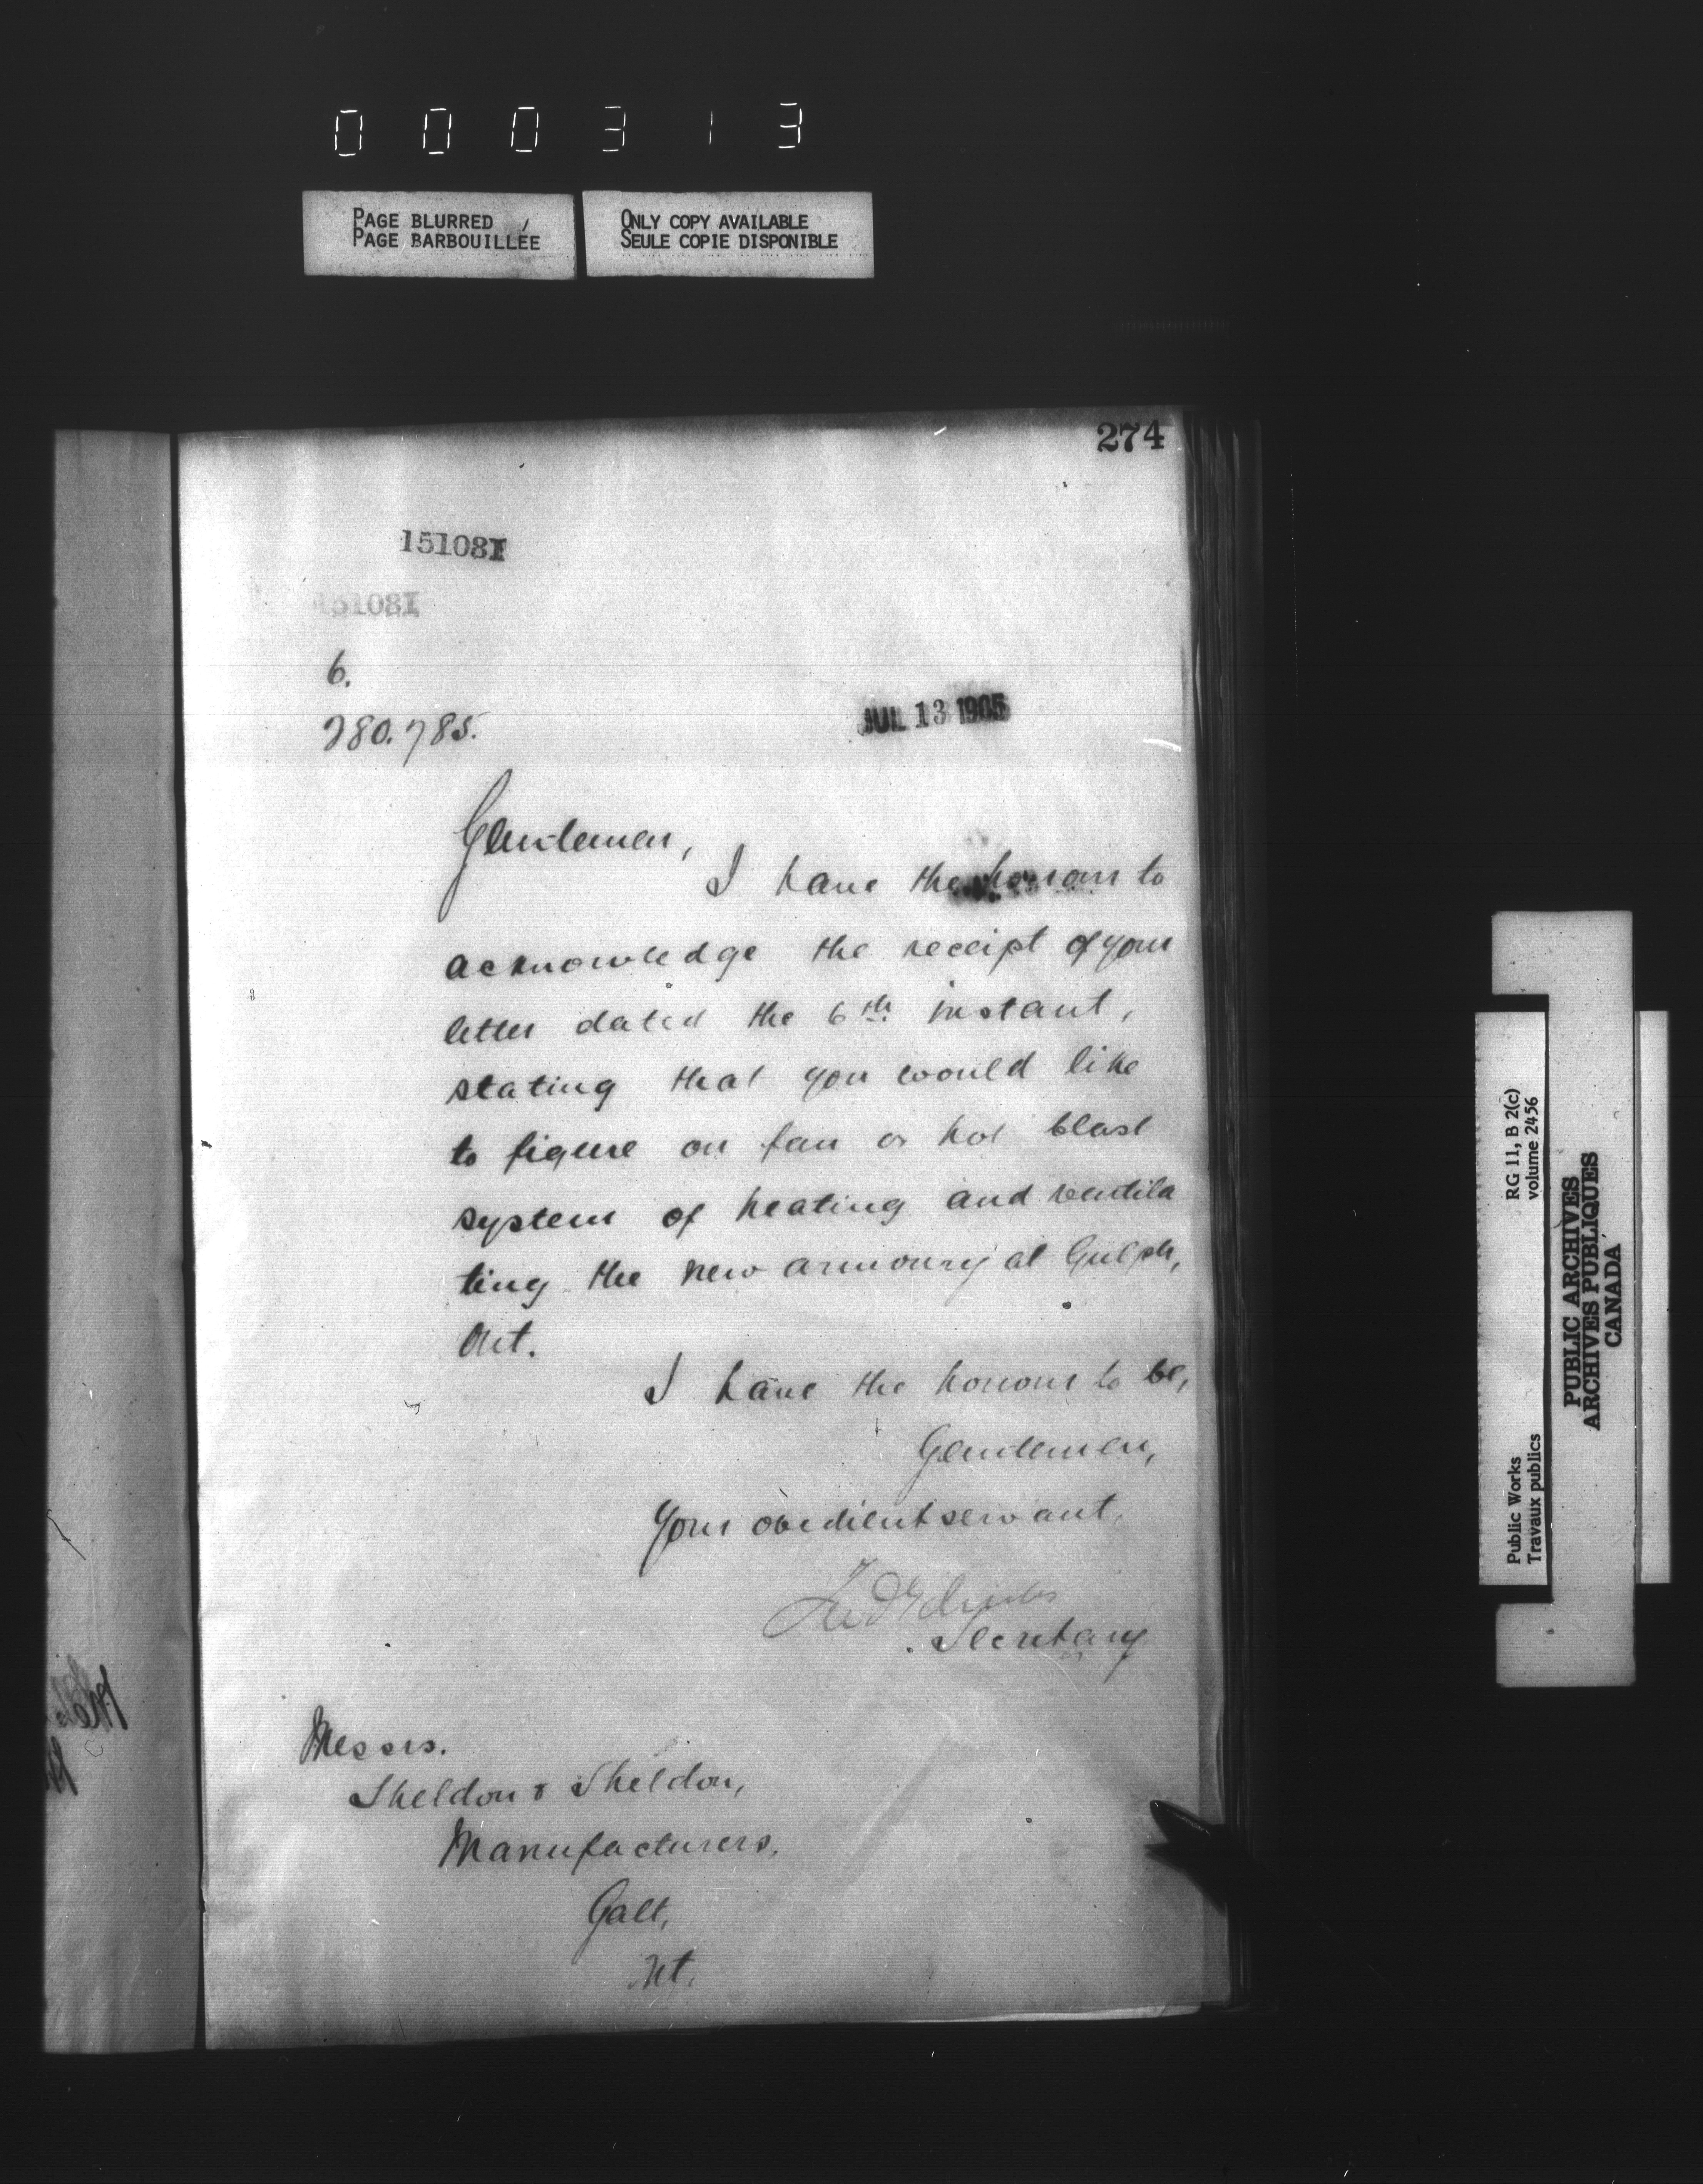 000313
PAGE BLURRED
PAGE BARBOUILLÉE
ONLY COPY AVAILABLE
SEULE COPIE DISPONIBLE
274
151081
151081
6.
280.785.
JUL 13 1905
Gentlemen,
I have the honour to
acknowledge the receipt of your
letter dated the 6th instant,
stating that you would like
to figure on fan or hot blast
system of heating and ventila
ting the new armoury at Gulph,
Ont.
I have the honour to be,
Gentlemen,
Your obedient servant,
Secretary
Messrs.
Sheldon & Sheldon,
Manufacturers,
Galt,
Ont.
RG 11, B 2(c)
volume 2456
Public Works
Travaux publics
PUBLIC ARCHIVES
ARCHIVES PUBLIQUES
CANADA